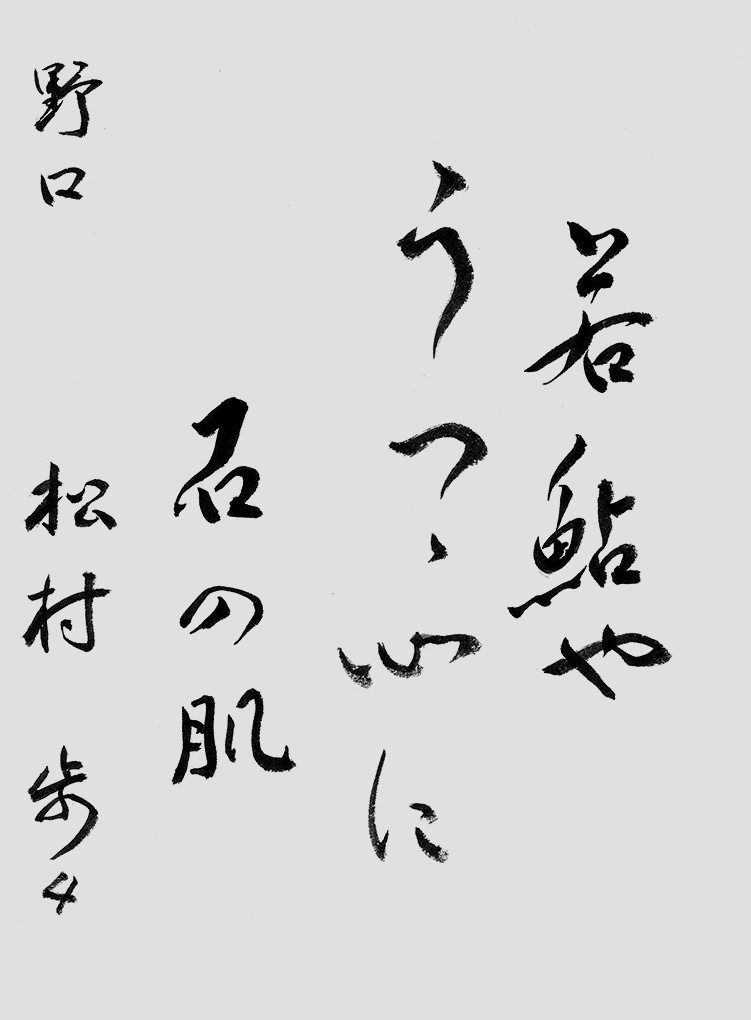 若鮎や
うつゝ心に
石の肌
野口 松村 歩